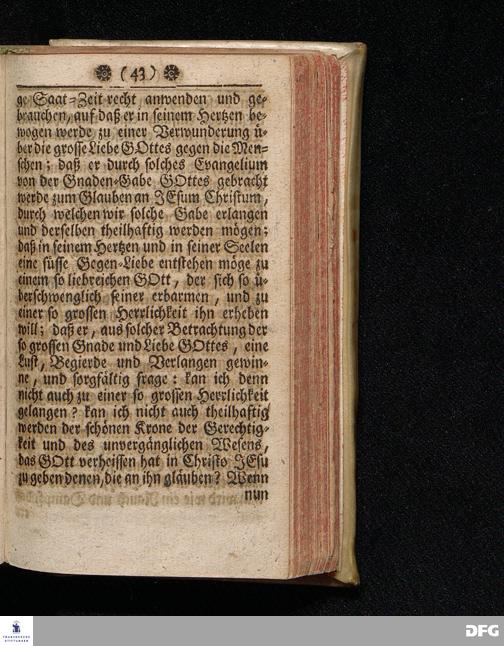 (43)
ge Saat-Zeit recht anwenden und ge-
brauchen, auf daß er in seinem Hertzen be-
wogen werde zu einer Verwunderung ü-
ber die grosse Liebe GOttes gegen die Men-
schen; daß er durch solches Evangelium
von der Gnaden-Gabe GOttes gebracht
werde zum Glauben an JEsum Christum,
durch welchen wir solche Gabe erlangen
und derselben theilhaftig werden mögen;
daß in seinem Hertzen und in seiner Seelen
eine süsse Gegen-Liebe entstehen möge zu
einem so liebreichen GOtt, der sich so ü-
berschwenglich seiner erbarmen, und zu
einer so grossen Herrlichkeit ihn erheben
will; daß er, aus solcher Betrachtung der
so grossen Gnade und Liebe GOttes, eine
Lust, Begierde und Verlangen gewin-
ne, und sorgfältig frage: kan ich denn
nicht auch zu einer so grossen Herrlichkeit
gelangen? kan ich nicht auch theilhaftig
werden der schönen Krone der Gerechtig-
keit und des unvergänglichen Wesens,
das GOtt verheissen hat in Christo JEsu
zu geben denen, die an ihn gläuben? Wenn
nun
FRANCKESCHE
STIFTUNGEN
DFG